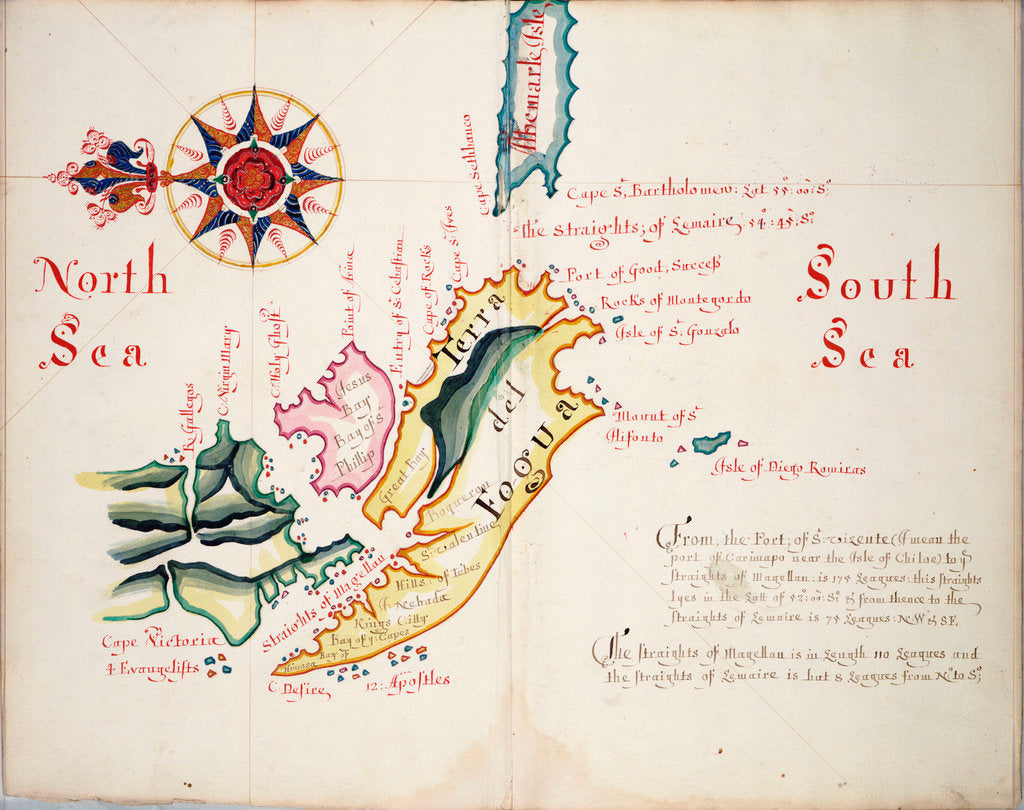 Albemark Isle
Cape Sethbanco
Cape St Bartholomew: Lat 55°:00: S°;
The Straights; of Lemaire 54°:45: S°
North
Sea
South
Sea
Port of Good; Success
Rocks of Montegordo
Isle of St Gonzalo
Cape St Ives
Cape of Rocks
Entry of St Cebastian
Point of Arina
C: Holy Ghost
C: Virgin Mary
R Gallegos
Terra
del
Fogua
Jesus
Bay
Bay of St
Phillip
Great Bay
Boqueron
St Valentine
Mount of St
Alifonto
Isle of Diego Romiras
Straights of Magellan
Hills: of Lobes
Nebada
Kings Citty
Bay of ye Capes
Bay of
Cape Victoria
4 Evangelists
C: Desire
12: Apostles
From; the Port; of St Vizente (I mean the
port of Carimapo near the Isle of Chiloe) to ye
straights of Magellan: is 175 Leagues: this straights
lyes in the Latt of 52°:00: S° & from thence to the
straights of Lemaire is 75 Leagues: NW & SE.
The straights of Magellan is in Length 110 Leagues and
the straights of Lemaire is but 8 Leagues from N° to S°;